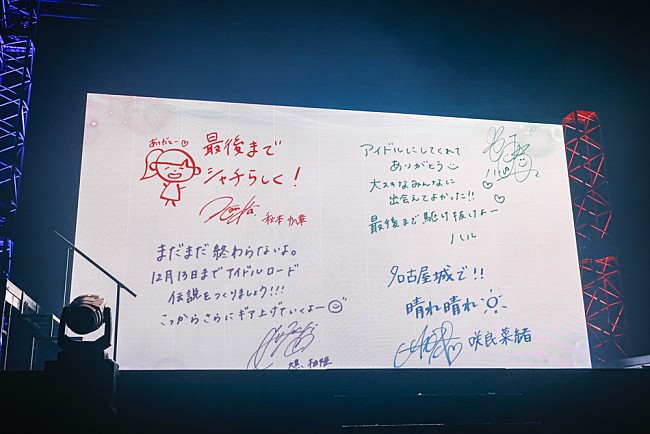 ありがとー♡
最後まで
シャチらしく!
秋本帆華
アイドルにしてくれて
ありがとう
大スキなみんなに
出会えてよかった!!
最後まで駆け抜けよー
ハル
まだまだ終わらないよ。
12月13日までアイドルロード
伝説をつくりましょう!!!
こっからさらにギア上げていくよー
大黒柚姫
名古屋城で!!
晴れ晴れ
咲良菜緒